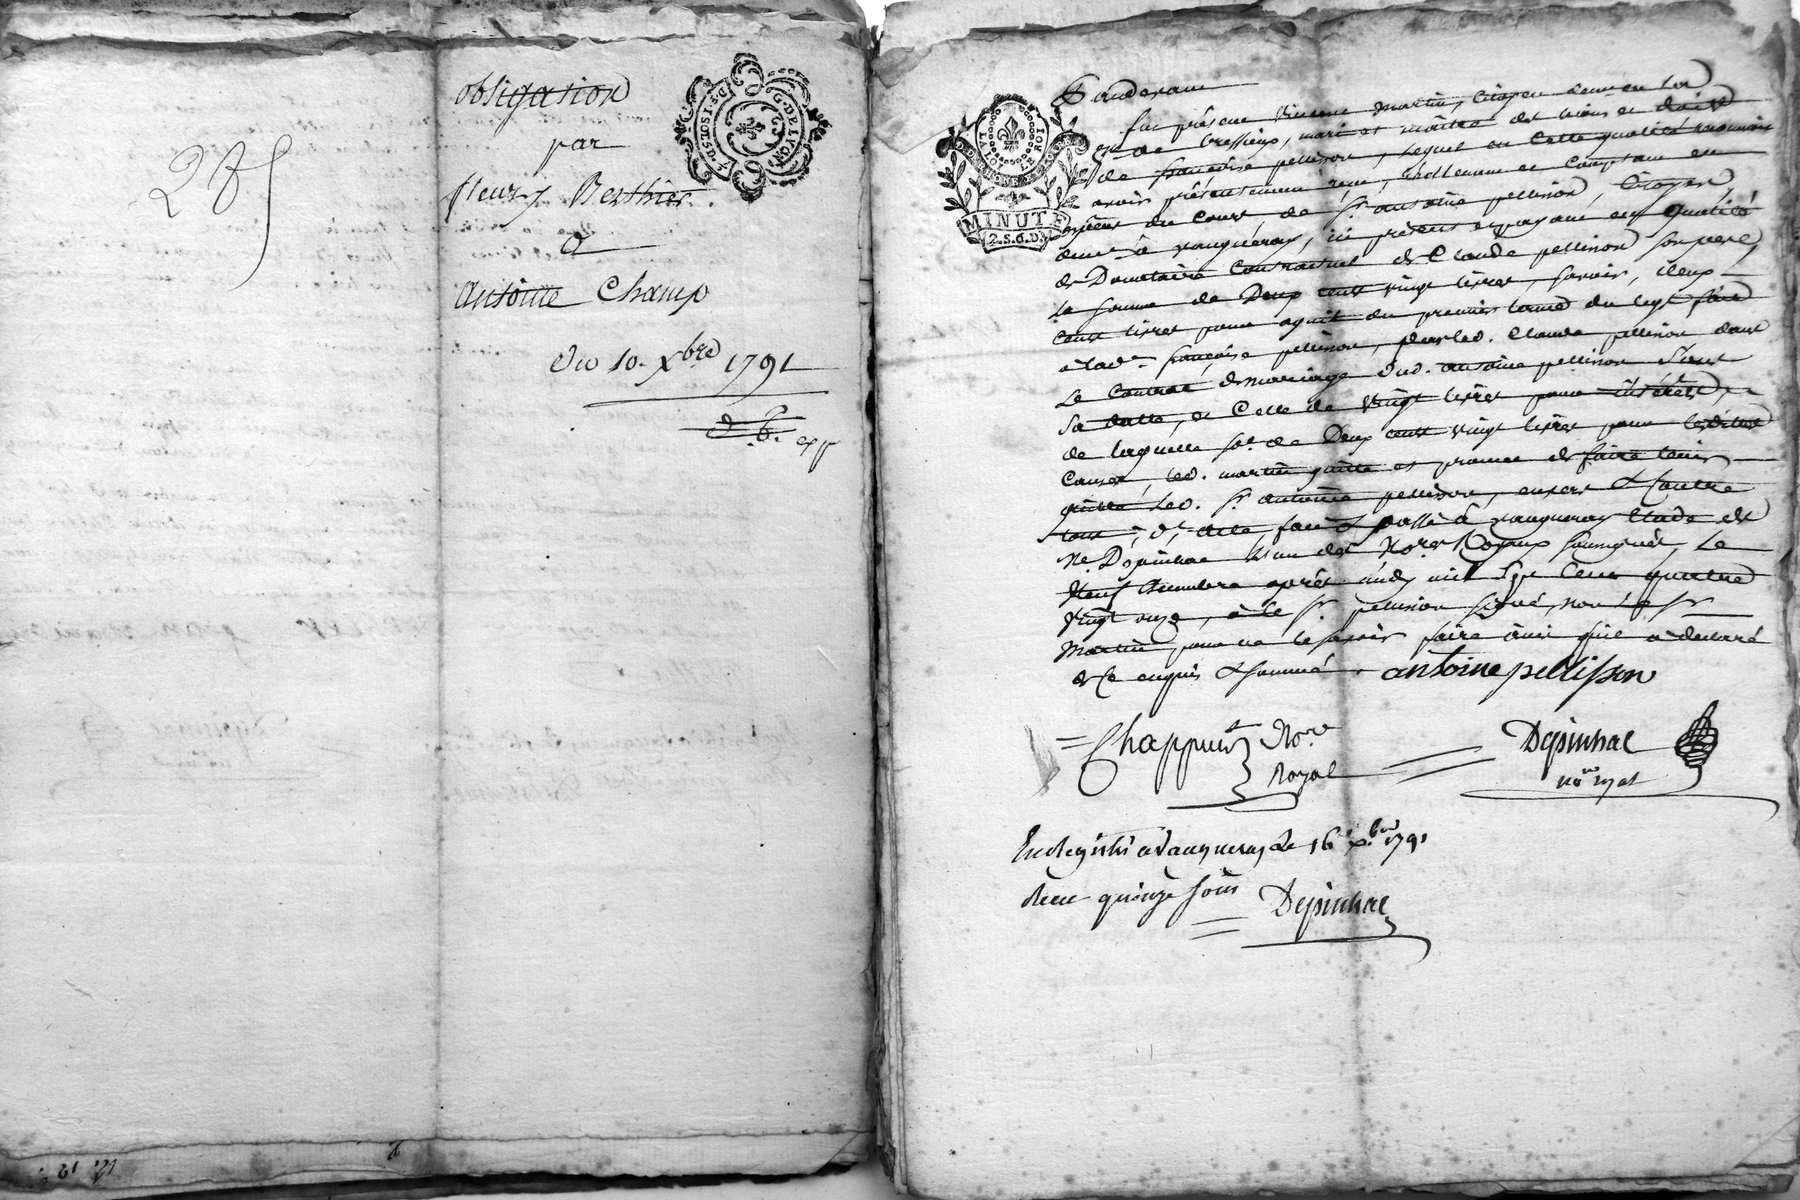 285
obligation
par
fleury Berthier
a
Antoine Champ
du 10. Xbre 1791
G. DE LYON
exp
MINUTE
2.S.6.D.
LA LOI LE ROI
Pardevant
fut présent Martin, Citoyen demeurant
de Bressieux, mari et maître des biens et droits
de françoise pellisson, lequel en cette qualité reconnoit
avoir présentement reçu, réellement et comptant en
espèces du cours de Sr. antoine pellisson, Citoyen,
demt. à vaugneray, ici présent et payant en qualité
de Donataire Contractuel de Claude pellisson son pere,
La somme de Deux cent vingt livres, savoir, deux
Cent livres pour aquit du premier terme du legs fait
à lad. françoise pellisson, par led. Claude pellisson dans
Le Contrat de mariage dud. antoine pellisson Sous
Sa datte, et Celle de vingt livres pour intérêts,
de laquelle so.e de Deux cent vingt livres pour lesdites
Causes, led. martin quitte et promet de faire tenir
quitte Led. Sr. antoine pellisson, envers & Contre
tous, d. acte, fait & passé à vaugneray Etude de
Me. Dépinhac L'un des No.res Royaux soussignés, Le
Neuf Decembre après midy mil Sept Cent quatre
vingt onze, & le Sr. pellisson signé, non Le Sr
Martin, pour ne le savoir faire ainsi qu'il a declaré
de Ce enquis & sommé. antoine pellisson
Chappuis No.re Royal
Dépinhac nore royal
Enregistré à Vaugneray Le 16 Xbre 1791
Recu quinze sous Depinhac